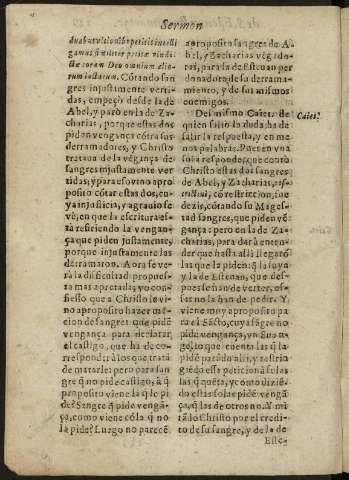 Sermon
gamus similiter petitæ vindi-
ctæ coram Deo omnium alio-
rum iustorum. Cõtando san-
gres injustamente verti-
das, empeçò desde la de
Abel, y parò en la de Za-
charias, porque estas dos
piden vengança cõtra sus
derramadores, y Christo
trataua de la vẽgança de
sangres injustamente ver-
tidas; y para esso vino a pro-
posito cõtar estas dos, cu-
ya injusticia, y agrauio se
vè, en que la escritura es-
tà refiriendo la vengan-
ça que piden justamente,
porque injustamente las
derramaron. Aora se ve-
rà la dificultad propues-
ta mas apretada; yo con-
fiesso que a Christo le vi-
no a proposito hazer mẽ-
cion de sangres que pidẽ
vengança, para declarar
el castigo, que ha de co-
rresponder à los que tratã
de matarle; pero para san-
gre q̃ no pide castigo, à q̃
proposito viene la q̃ le pi-
de? Sangre q̃ pide vengã-
ça, como viene cõ la q̃ no
la pide? Luego no parecẽ
a proposito sangres de A-
bel, y Zacharias vẽgado-
ras, para la de Esteuan per-
donadora de su derrama-
miento, y de sus mismos
enemigos.
Del mismo Caiet. de
quien saliò la duda, ha de
salir la respuesta, y en me-
nos palabras. Pues en vna
sola responde; que contò
Christo estas dos sangres
de Abel, y Zacharias, res-
trictiuè, cõ restriccion, fue
dezir, cõtando su Mages-
tad sangres, que piden vẽ-
gança: pero en la de Za-
charias, para dar à enten-
der que hasta alli llegarõ
las que la piden: q̃ la suya
y la de Esteuan, que des-
pues se han de verter, es-
sas no la han de pedir. Y
viene muy a proposito pa-
ra el Sãcto, cuya sãgre no
pide vengança, vn Euan-
gelio que cuenta las q̃ la
pidẽ parãdo alli, y restrin-
giẽdo essa peticiõ à solas
las q̃ quẽta, y cõmo diziẽ-
do estas solas pidẽ vengã-
ça, q̃ las de otros no. Y mi-
rã lo Christo por el credi-
to de su sangre, y de la de
Caiet.
Este-